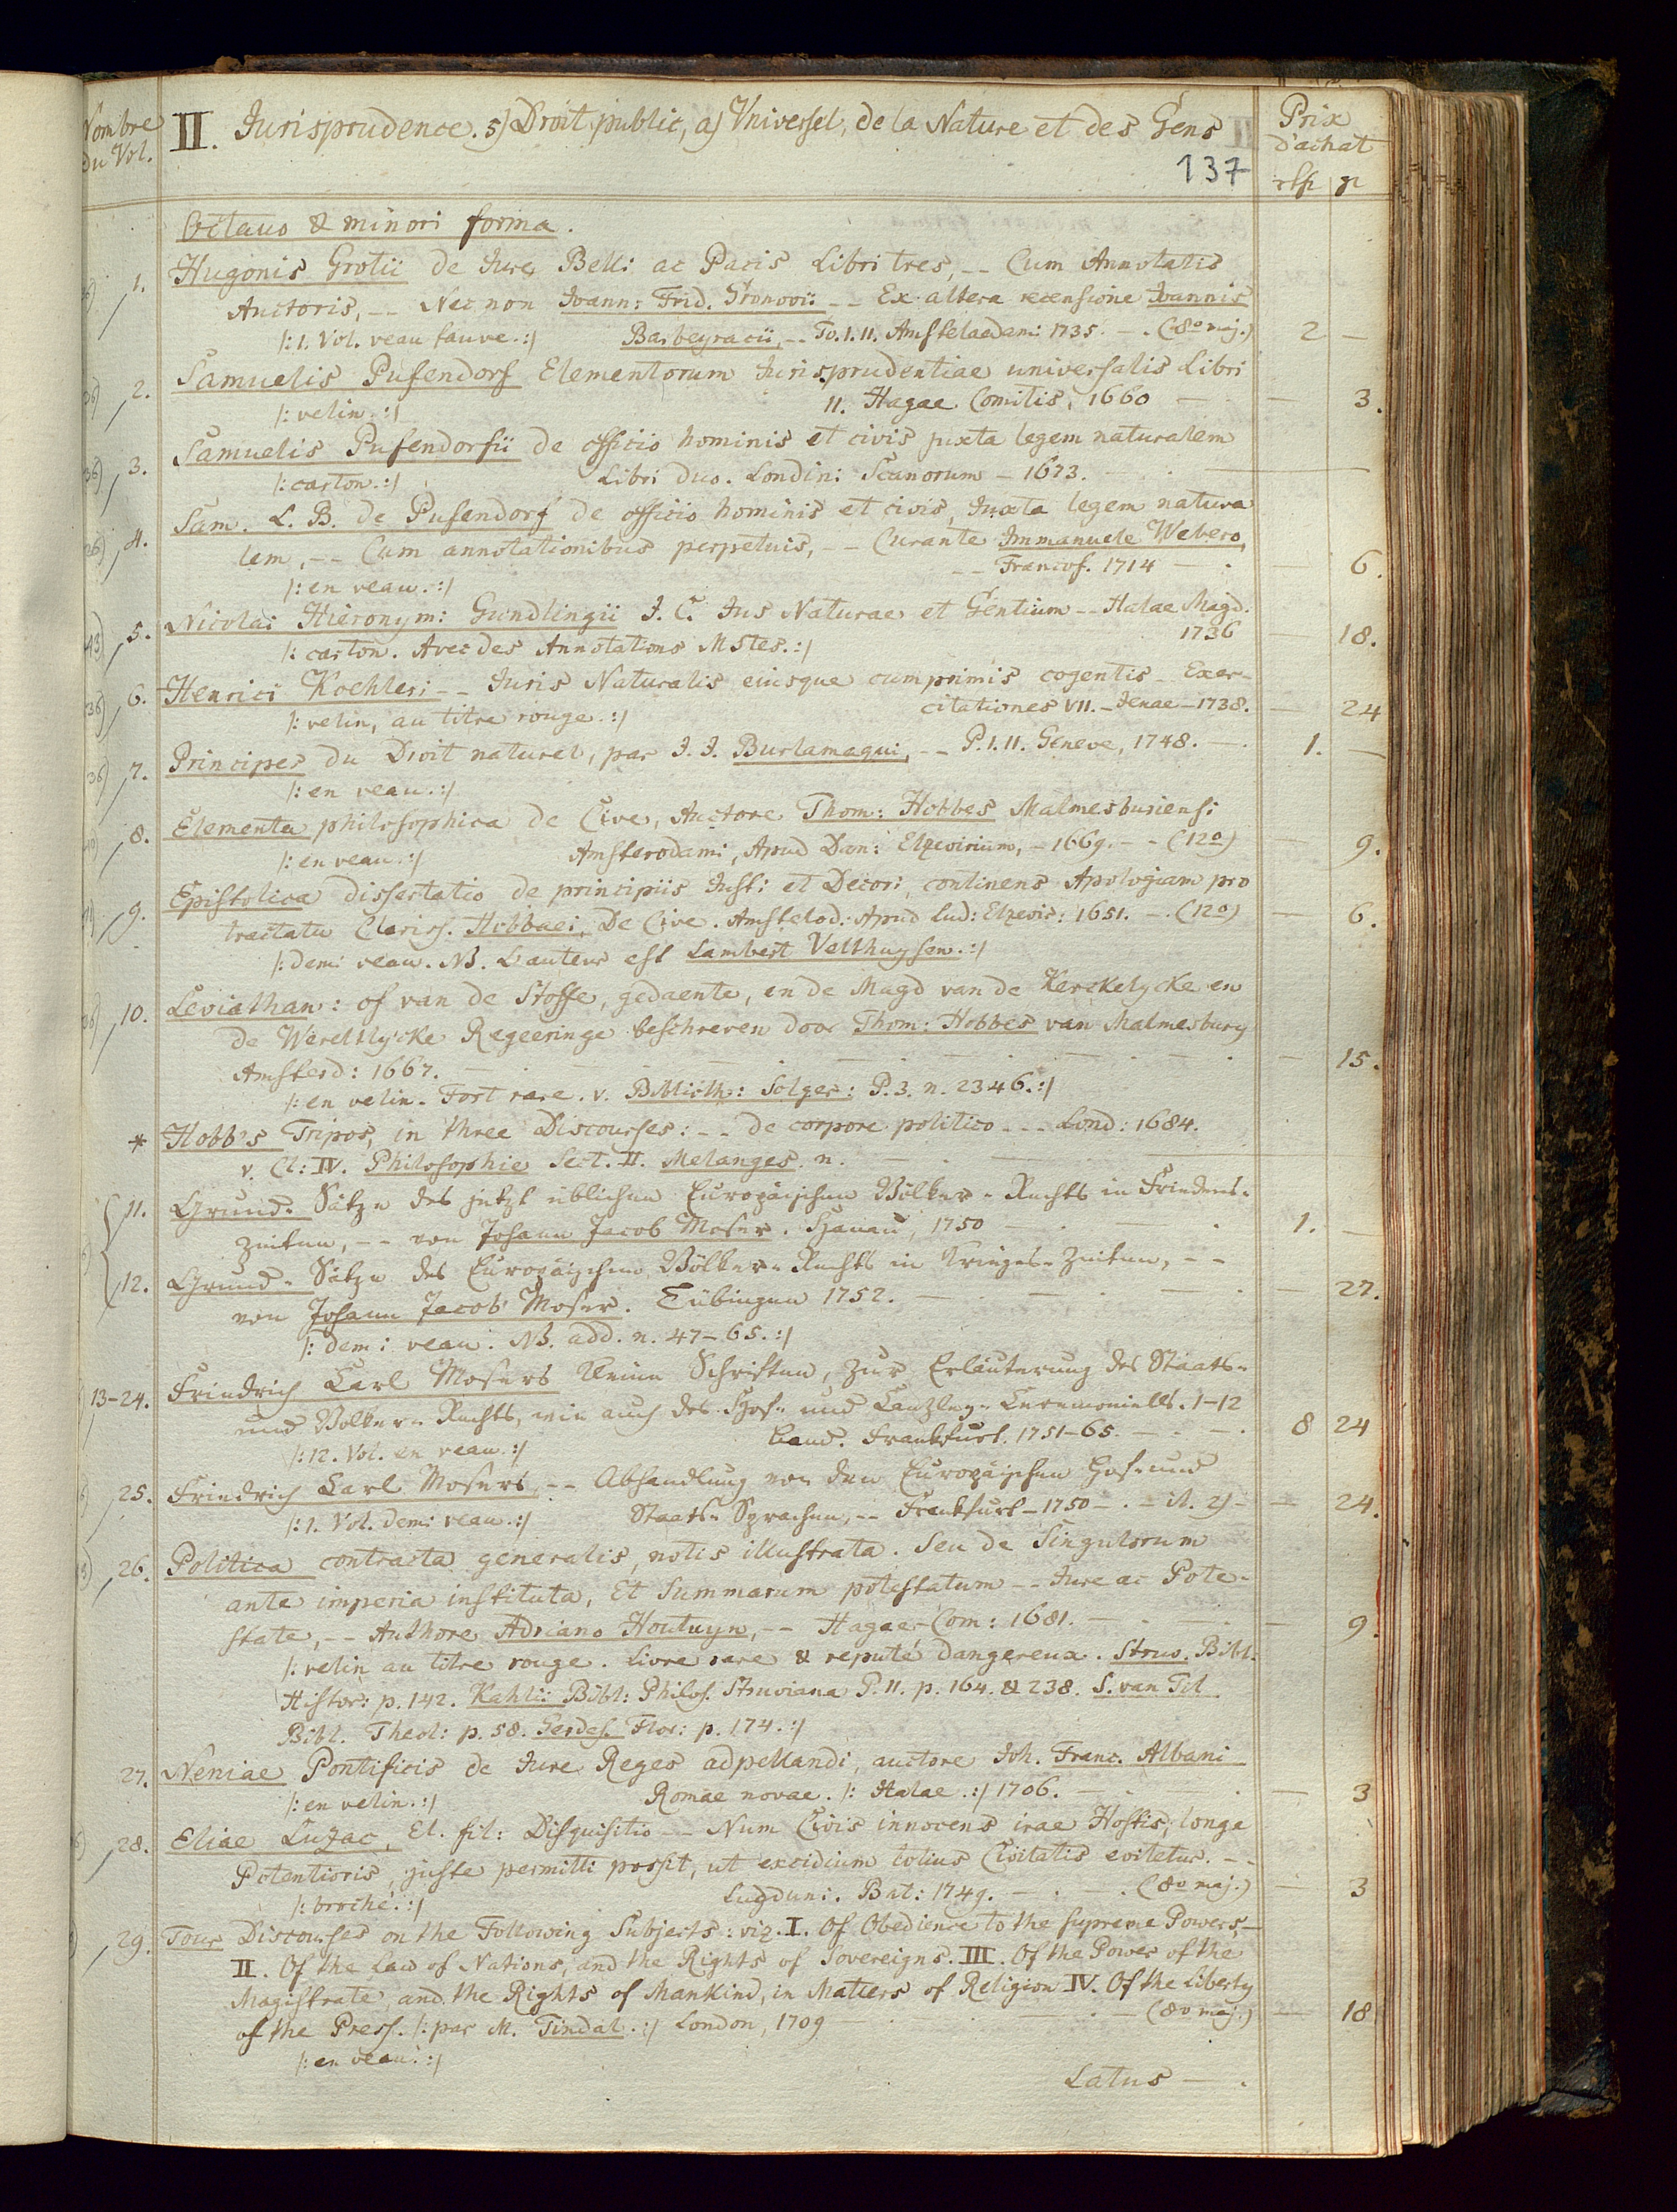 Nombre du Vol.
II. Jurisprudence. 5) Droit public, a) Universel, de la Nature et des Gens
Prix d'achat
137
Octavo & minori forma.
1. Hugonis Grotii de Jure Belli ac Pacis Libri tres, -- Cum Annotatis
Auctoris, -- Nec non Joann: Frid. Gronovii -- Ex altera recensione Joannis
/: 1. Vol. veau fauve. :/ Barbeyracii, -- To. I. II. Amstelaedami 1735. - . (8o maj.) 2 —
2. Samuelis Pufendorf Elementorum Jurisprudentiae universalis Libri
/: velin. :/ II. Hagae Comitis, 1660 — — 3.
3. Samuelis Pufendorfii de officio hominis et civis juxta legem naturalem
/: carton. :/ Libri duo. Londini Scanorum - 1673. — —
4. Sam. L. B. de Pufendorf de officio hominis et civis, Juxta legem natura
lem, -- Cum annotationibus perpetuis, -- Curante Immanuele Webero,
/: en veau. :/ -- Francof. 1714 — . — 6.
5. Nicolai Hieronymi Gundlingii J. C. Jus Naturae et Gentium -- Halae Magd.
/: carton. Avec des Annotations MStes. :/ 1736 — 18.
6. Henrici Koehleri -- Juris Naturalis eiusque cumprimis cogentis - Exer-
/: velin, au titre rouge. :/ citationes VII. - Jenae - 1738. — 24
7. Principes du Droit naturel, par J. J. Burlamaqui, -- P. I. II. Geneve, 1748. — . 1. —
/: en veau. :/
8. Elementa philosophica de Cive, Auctore Thom: Hobbes Malmesburiensi
/: en veau. :/ Amsterodami, Apud Dan: Elzevirium, - 1669. - - (12o) — 9.
9. Epistolica dissertatio de principiis Justi et Decori, continens Apologiam pro
tractatu Clariss. Hobbaei, De Cive. Amstelod: Apud Lud: Elzevir: 1651. - . (12o) — 6.
/: demi veau. NB. L'auteur est Lambert Velthuysen. :/
10. Leviathan: of van de Stoffe, gedaente, en de Magd van de Kerckelycke en
de Wereltlycke Regeeringe beschreven door Thom: Hobbes van Malmesbury
Amsterd: 1667. — . — . — . — . — 15.
/: en velin. Fort rare. v. Biblioth: Solger: P. 3. n. 2346. :/
* Hobb's Tripos, in three Discourses: -- de corpore politico --- Lond: 1684.
v. Cl: IV. Philosophie Sect. II. Melanges. n. — . —
11. Grund-Sätze des jetzt üblichen Europäischen Völker-Rechts in Friedens-
Zeiten, -- von Johann Jacob Moser. Hanau, 1750 — . 1. —
12. Grund-Sätze des Europäischen Völker-Rechts in Krieges-Zeiten, --
von Johann Jacob Moser. Tübingen 1752. — . — . — . — 27.
/: demi veau. NB. add. n. 47-65. :/
13-24. Friedrich Carl Mosers kleine Schriften, zur Erläuterung des Staats-
und Völker-Rechts, wie auch des Hof- und Canzley-Ceremoniells. 1-12
/: 12. Vol. en veau. :/ Band. Frankfurt. 1751-65. — . — . 8 24
25. Friedrich Carl Mosers, -- Abhandlung von den Europäischen Hof- und
/: 1. Vol. demi veau. :/ Staats-Sprachen, -- Frankfurt - 1750 - . - — 24.
26. Politica contracta generalis, notis illustrata. Seu de Singulorum
ante imperia instituta, Et Summarum potestatum -- Jure ac Pote-
state, -- Authore Adriano Houtuyn, -- Hagae-Com: 1681. — . — — 9.
/: velin au titre rouge. Livre rare & reputé dangereux. Struv. Bibl.
Histor: p. 142. Kahlii Bibl: Philos. Struviana P. II. p. 164. & 238. S. van Til
Bibl. Theol: p. 58. Gerdes. Flor: p. 174. :/
27. Neniae Pontificis de Jure Reges adpellandi, auctore Joh. Franc. Albani
/: en velin. :/ Romae novae. /: Halae. :/ 1706. — . — 3
28. Eliae Luzac, El. fil: Disquisitio -- Num Civis innocens irae Hostis, longe
Potentioris, juste permitti possit, ut excidium totius Civitatis evitetur. --
/: broché. :/ Lugduni. Bat: 1749. — . — . (8o maj.) — 3
29. Four Discourses on the Following Subjects: viz. I. Of Obedience to the supreme Powers, -
II. Of the Law of Nations, and the Rights of Sovereigns. III. Of the Power of the
Magistrate, and the Rights of Mankind, in Matters of Religion IV. Of the Liberty
of the Press. /: par M. Tindal. :/ London, 1709 — . — (8o maj.) — 18
/: en veau. :/
Latus — .